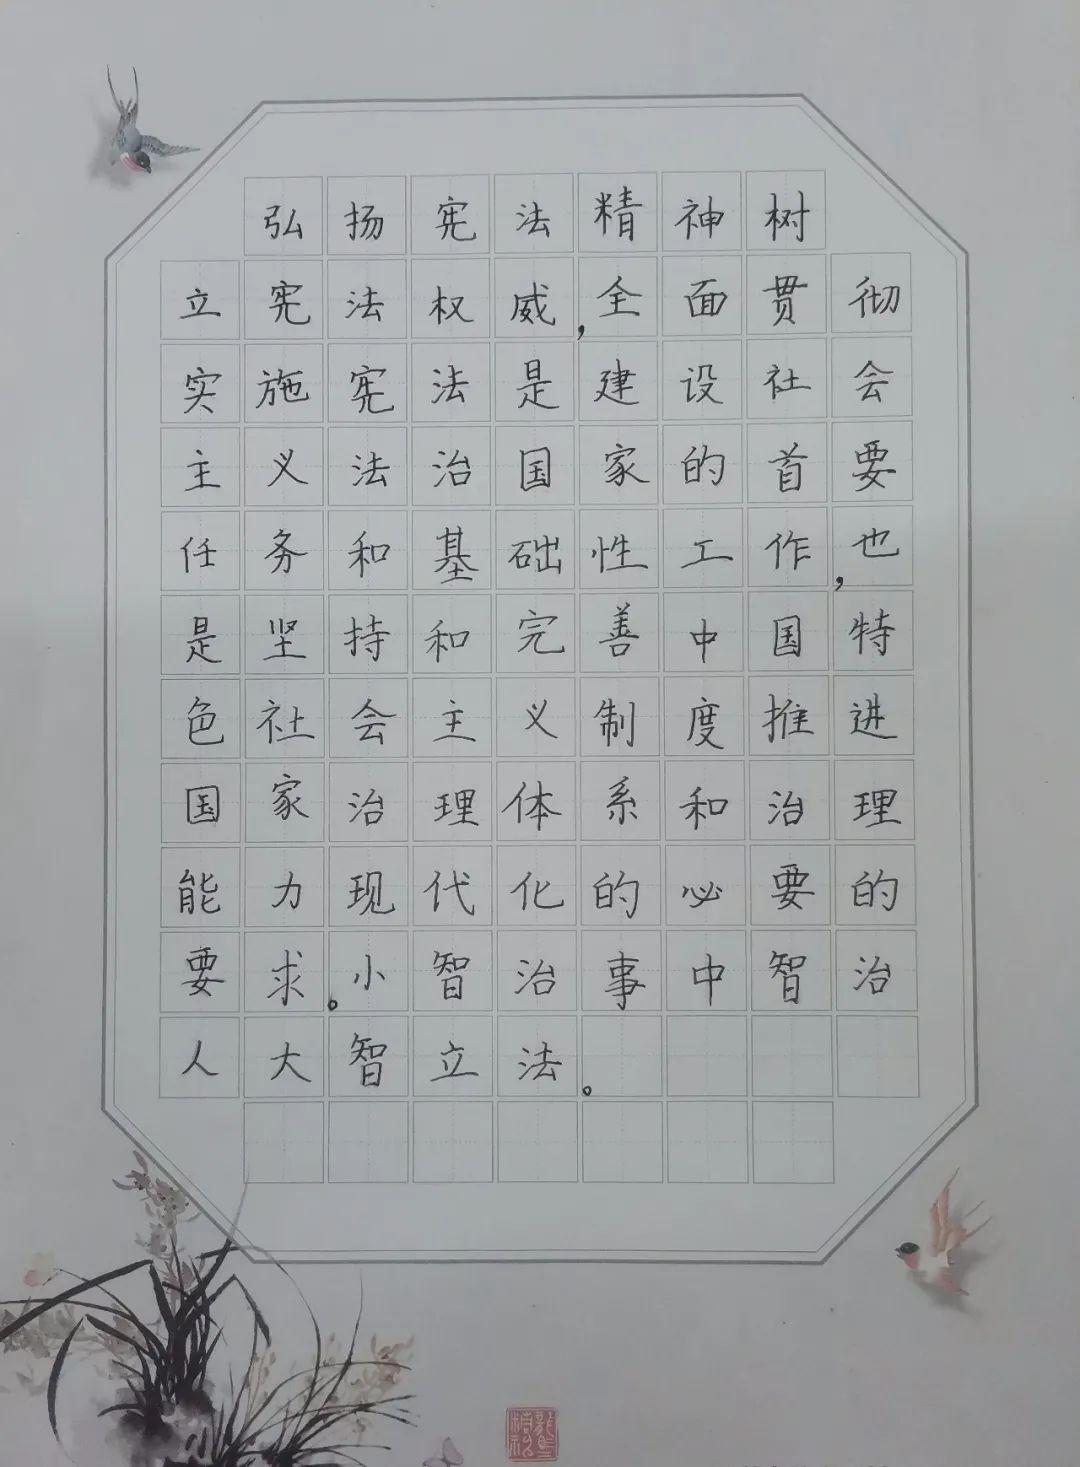 弘扬宪法精神树
立宪法权威,全面贯彻
实施宪法是建设社会
主义法治国家的首要
任务和基础性工作,也
是坚持和完善中国特
色社会主义制度推进
国家治理体系和治理
能力现代化的必要的
要求。小智治事中智治
人大智立法。